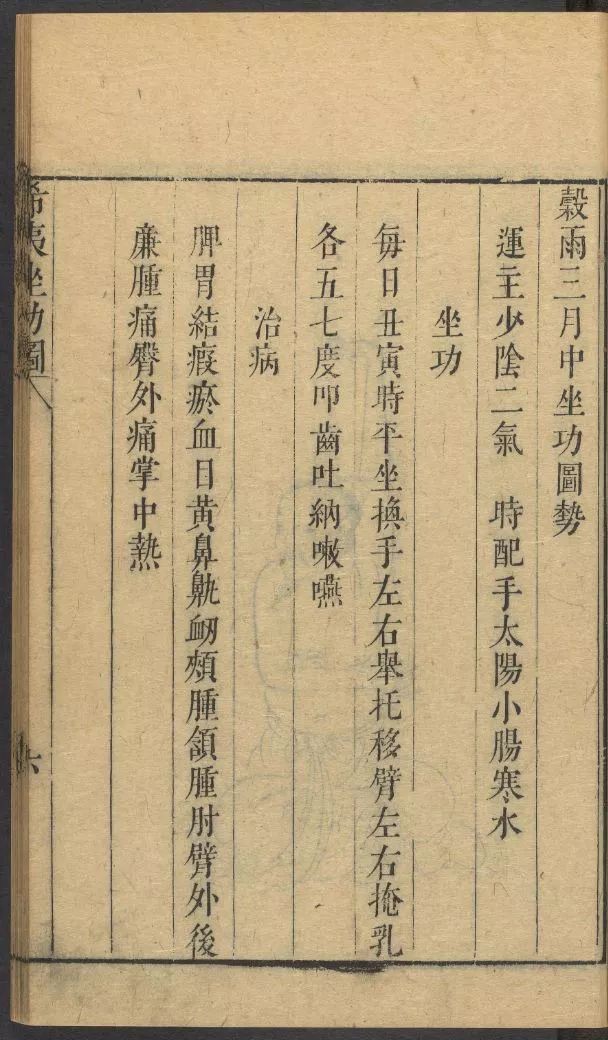 穀雨三月中坐功圖勢
運主少陰二氣　時配手太陽小腸寒水
坐功
每日丑寅時平坐換手左右舉托移臂左右掩乳
各五七度叩齒吐納嗽嚥
治病
脾胃結瘕瘀血目黄鼻鼽衂頰腫頷腫肘臂外後
廉腫痛臂外痛掌中熱
希夷坐功圖
六